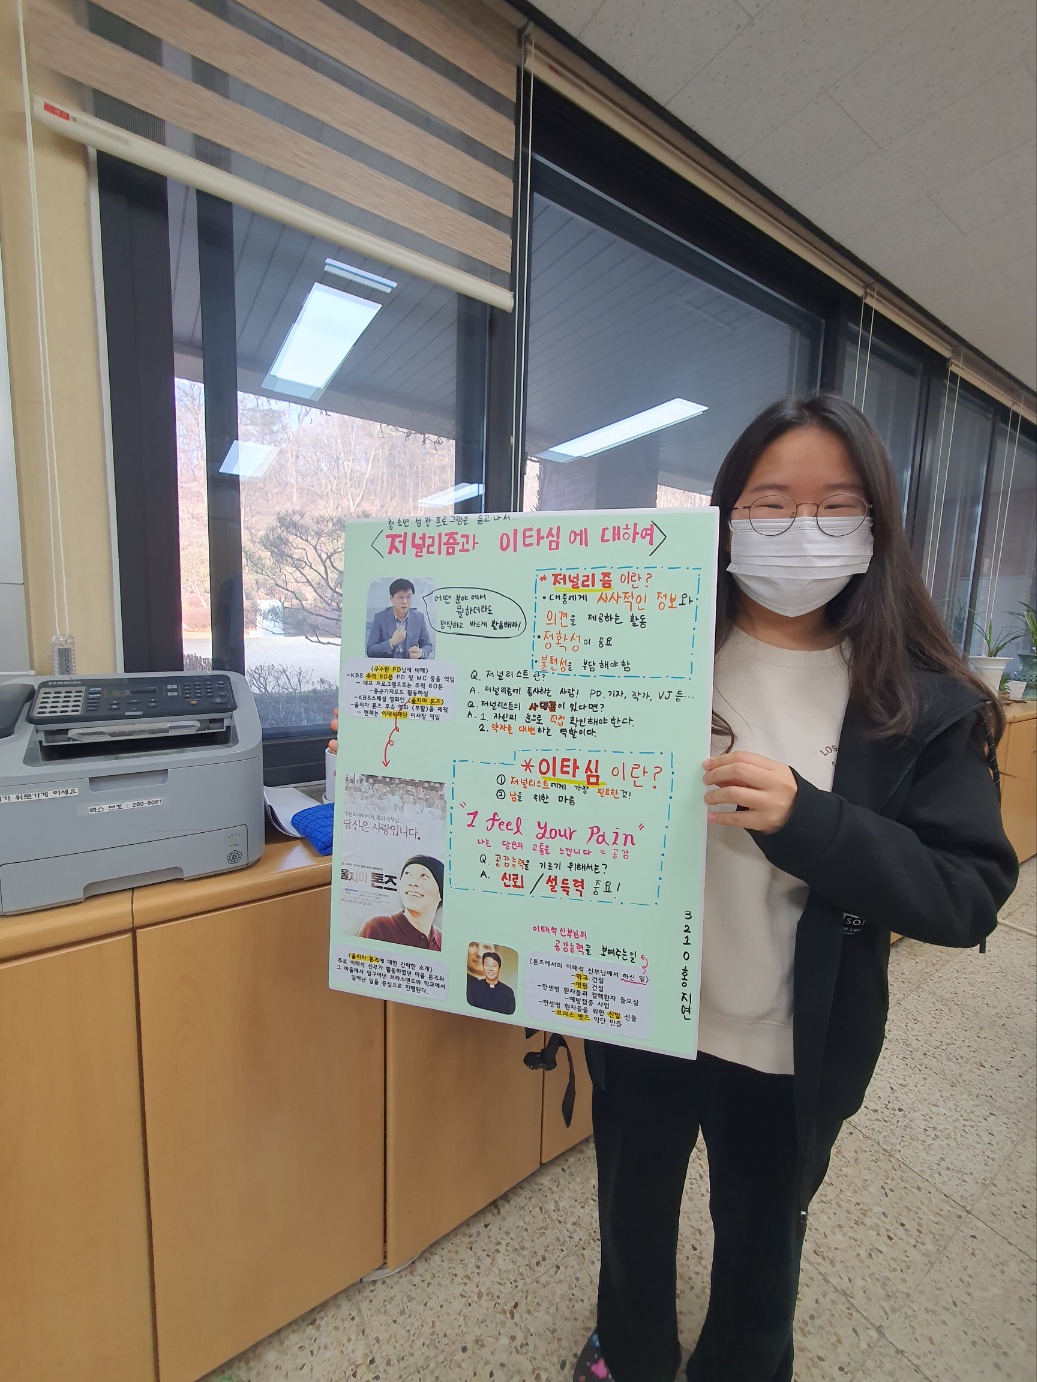 청소년 성장 프로그램을 듣고 나서
<저널리즘과 이타심에 대하여>
어떤 분야에서
뭘하더라도
정직하고 바르게 활용해라!
<구수환 PD님에 대해>
-KBS 추적 60분 PD 및 MC 등을 역임
- 대표 프로그램으로는 추적 60분
-종군기자로도 활동하심
-KBS스페셜 영화인 <울지마 톤즈>
-울지마 톤즈 후속 영화 <부활>을 제작
- 현재는 이태석재단 이사장 역임
* 저널리즘 이란?
• 대중에게 시사적인 정보와
의견을 제공하는 활동
• 정확성이 중요
• 불편성을 부담해야함
Q. 저널리스트란?
A. 저널리즘에 종사하는 사람! PD, 기자, 작가, VJ 등…
Q. 저널리스트의 사명이 있다면?
A. 1. 자신의 눈으로 직접 확인해야 한다.
2. 약자를 대변하는 역할이다.
*이타심 이란?
① 저널리스트에게 가장 필요한것!
② 남을 위한 마음
"I feel your Pain"
나는 당신의 고통을 느낍니다 = 공감
Q. 공감능력을 기르기 위해서는?
A. 신뢰 / 설득력 중요!
당신은 사랑입니다.
울지마 톤즈
<울지마 톤즈에 대한 간략한 소개>
주로 이태석 신부가 활동하였던 마을 톤즈와
그 마을에서 일구어낸 브라스밴드와 학교에서
일어난 일을 중심으로 진행된다.
이태석 신부님의
공감능력을 보여주는 일
(톤즈에서의 이태석 신부님께서 하신 일)
-학교 건설
-병원 건설
-한센병 환자들과 결핵환자 돌보심
-예방접종 사업
-한센병 환자들을 위한 신발 선물
-브라스 밴드 악단 만듦
3210 홍지연
SAMSUNG
가 뒤로가게 하세요
팩스 번호 : 260-8081
LOS